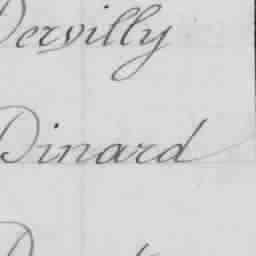 Dervilly
Dinard